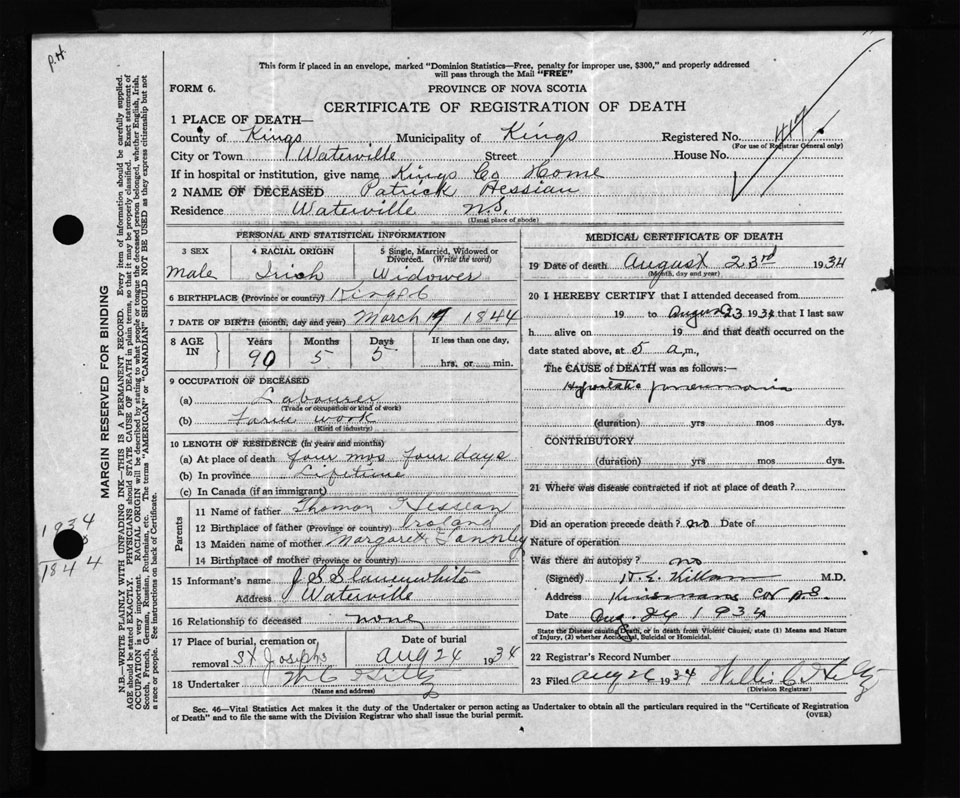 P.H.
This form if placed in an envelope, marked "Dominion Statistics—Free, penalty for improper use, $300," and properly addressed
will pass through the Mail "FREE"
FORM 6.
PROVINCE OF NOVA SCOTIA
CERTIFICATE OF REGISTRATION OF DEATH
1 PLACE OF DEATH—
County of Kings Municipality of Kings Registered No.
(For use of Registrar General only)
City or Town Waterville Street House No.
If in hospital or institution, give name Kings Co Home
2 NAME OF DECEASED Patrick Hessian
Residence Waterville N.S.
(Usual place of abode)
PERSONAL AND STATISTICAL INFORMATION
3 SEX 4 RACIAL ORIGIN 5 Single, Married, Widowed or Divorced. (Write the word)
Male Irish Widower
6 BIRTHPLACE (Province or country) Kings C
7 DATE OF BIRTH (month, day and year) March 1844
8 AGE IN Years Months Days If less than one day,
90 5 5 hrs. or min.
9 OCCUPATION OF DECEASED
(a) Labourer
(Trade or occupation or kind of work)
(b) Farm work
(Kind of industry)
10 LENGTH OF RESIDENCE (in years and months)
(a) At place of death four mos four days
(b) In province Lifetime
(c) In Canada (if an immigrant)
Parents
11 Name of father Thomas Hessian
12 Birthplace of father (Province or country) Ireland
13 Maiden name of mother Margaret
14 Birthplace of mother (Province or country)
15 Informant's name J S Slauenwhite
Address Waterville
16 Relationship to deceased none
17 Place of burial, cremation or removal St Josephs
Date of burial Aug 24 1934
18 Undertaker
(Name and address)
MEDICAL CERTIFICATE OF DEATH
19 Date of death August 23rd 1934
(Month, day and year)
20 I HEREBY CERTIFY that I attended deceased from
19 to August 23 1934 that I last saw
h alive on 19 and that death occurred on
date stated above, at 5 a.m.,
The CAUSE of DEATH was as follows:—
Hypostatic pneumonia
(duration) yrs mos dys.
CONTRIBUTORY
(duration) yrs mos dys.
21 Where was disease contracted if not at place of death?
Did an operation precede death? no Date of
Nature of operation
Was there an autopsy? no
(Signed) Killam M.D.
Address Kinsmans Cor N.S.
Date Aug. 24 1934
State the Disease causing Death, or in death from Violent Causes, state (1) Means and Nature
of Injury, (2) whether Accidental, Suicidal or Homicidal.
22 Registrar's Record Number
23 Filed Aug 26 1934 Willis C
(Division Registrar)
Sec. 46—Vital Statistics Act makes it the duty of the Undertaker or person acting as Undertaker to obtain all the particulars required in the "Certificate of Registration
of Death" and to file the same with the Division Registrar who shall issue the burial permit. (OVER)
MARGIN RESERVED FOR BINDING
N.B.—WRITE PLAINLY WITH UNFADING INK—THIS IS A PERMANENT RECORD. Every item of information should be carefully supplied.
AGE should be stated EXACTLY. PHYSICIANS should STATE CAUSE OF DEATH in plain terms, so that it may be properly classified. Exact statement of
OCCUPATION is very important. RACIAL ORIGIN will be described by stating to what people or tongue the deceased person belonged, whether English, Irish,
Scotch, French, German, Russian, Ruthenian, etc. The terms "AMERICAN" or "CANADIAN" SHOULD NOT BE USED as they express citizenship but not
a race or people. See instructions on back of Certificate.
1934
1844